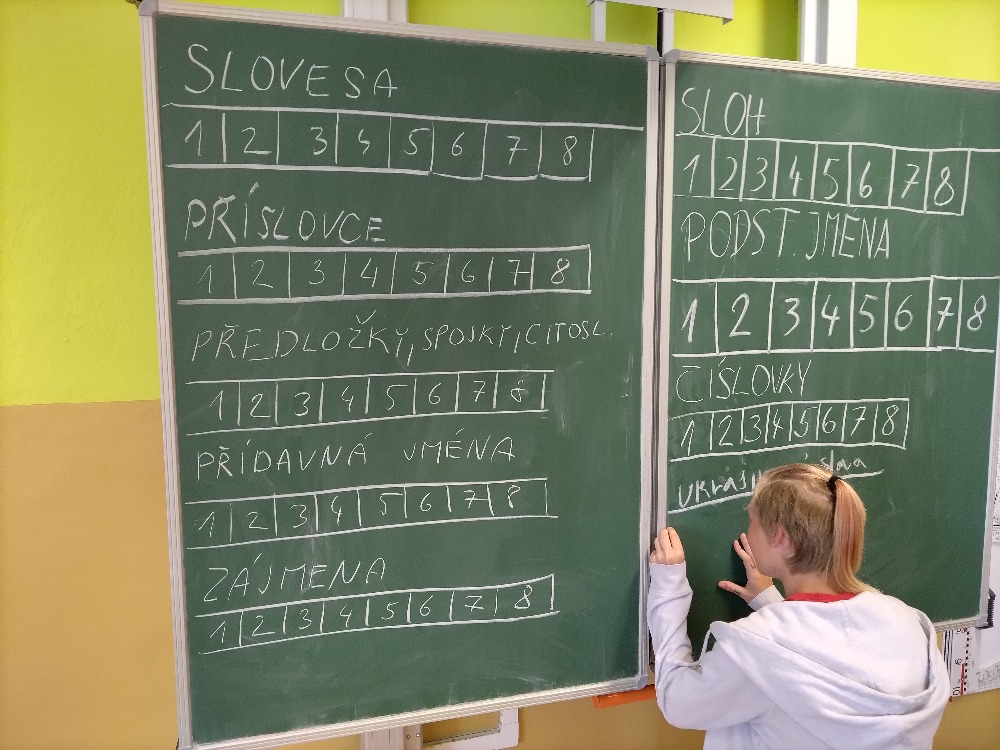 SLOVESA
1 2 3 4 5 6 7 8
PŘÍSLOVCE
1 2 3 4 5 6 7 8
PŘEDLOŽKY, SPOJKY, CITOSL.
1 2 3 4 5 6 7 8
PŘÍDAVNÁ JMÉNA
1 2 3 4 5 6 7 8
ZÁJMENA
1 2 3 4 5 6 7 8
SLOH
1 2 3 4 5 6 7 8
PODST. JMÉNA
1 2 3 4 5 6 7 8
ČÍSLOVKY
1 2 3 4 5 6 7 8